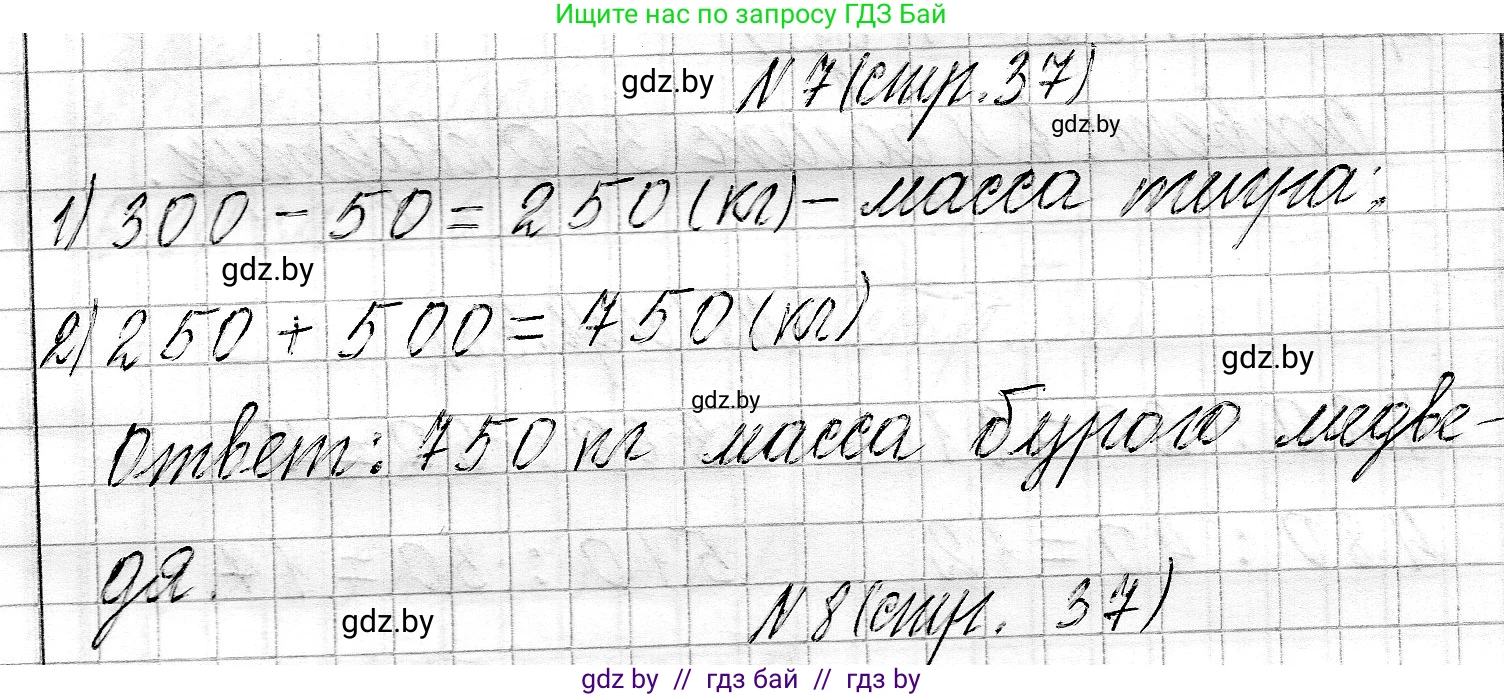 Ищите нас по запросу ГДЗ Бай
gdz.by N 7 (стр. 37)
gdz.by
1) 300 - 50 = 250 (кг) - масса тигра;
gdz.by
2) 250 + 500 = 750 (кг)
gdz.by
gdz.by
Ответ: 750 кг масса бурого медве-
дя.
gdz.by N 8 (стр. 37)
gdz.by // гдз бай // гдз by